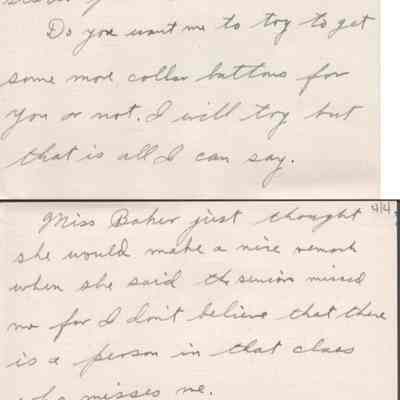 Do you want me to try to get
some more collar buttons for
you or not. I will try but
that is all I can say.
4/4
Miss Baker just thought
she would make a nice remark
when she said the seniors missed
me for I don't believe that there
is a person in that class
who misses me.